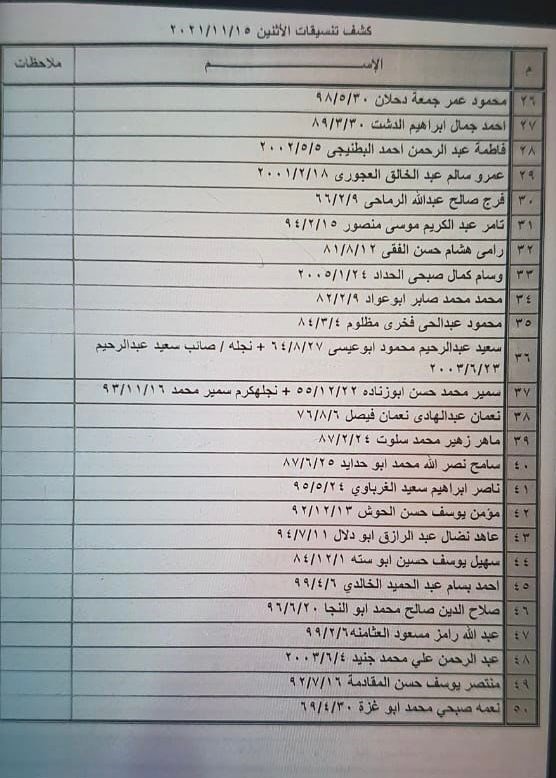 كشف تنسيقات الأثنين ٢٠٢١/١١/١٥
م الإســـــم ملاحظات
٢٦ محمود عمر جمعة دحلان ٩٨/٥/٣٠
٢٧ احمد جمال ابراهيم الدشت ٨٩/٣/٣٠
٢٨ فاطمة عبد الرحمن احمد البطنيجى ٢٠٠٢/٥/٥
٢٩ عمرو سالم عبد الخالق العجورى ٢٠٠١/٢/١٨
٣٠ فرج صالح عبدالله الرماحى ٦٦/٢/٩
٣١ تامر عبد الكريم موسى منصور ٩٤/٢/١٥
٣٢ رامى هشام حسن الفقى ٨١/٨/١٢
٣٣ وسام كمال صبحى الحداد ٢٠٠٥/١/٢٤
٣٤ محمد محمد صابر ابوعواد ٨٢/٢/٩
٣٥ محمود عبدالحى فخرى مظلوم ٨٤/٣/٤
٣٦ سعيد عبدالرحيم محمود ابوعيسى ٦٤/٨/٢٧ + نجله / صائب سعيد عبدالرحيم
٢٠٠٣/٦/٢٣
٣٧ سمير محمد حسن ابوزناده ٥٥/١٢/٢٢ + نجلهكرم سمير محمد ٩٣/١١/١٦
٣٨ نعمان عبدالهادى نعمان فيصل ٧٦/٨/٦
٣٩ ماهر زهير محمد سلوت ٨٧/٢/٢٤
٤٠ سامح نصر الله محمد ابو حدايد ٨٧/٦/٢٥
٤١ ناصر ابراهيم سعيد الغرباوي ٩٥/٥/٢٤
٤٢ مؤمن يوسف حسن الحوش ٩٢/١٢/١٣
٤٣ عاهد نضال عبد الرازق ابو دلال ٩٤/٧/١١
٤٤ سهيل يوسف حسين ابو سته ٨٤/١٢/١
٤٥ احمد بسام عبد الحميد الخالدي ٩٩/٤/٦
٤٦ صلاح الدين صالح محمد ابو النجا ٩٦/٦/٢٠
٤٧ عبد الله رامز مسعود العثامنه٩٩/٢/٦
٤٨ عبد الرحمن علي محمد جنيد ٢٠٠٣/٦/٤
٤٩ منتصر يوسف حسن المقادمة ٩٢/٧/١٦
٥٠ نعمه صبحي محمد ابو غزة ٦٩/٤/٣٠